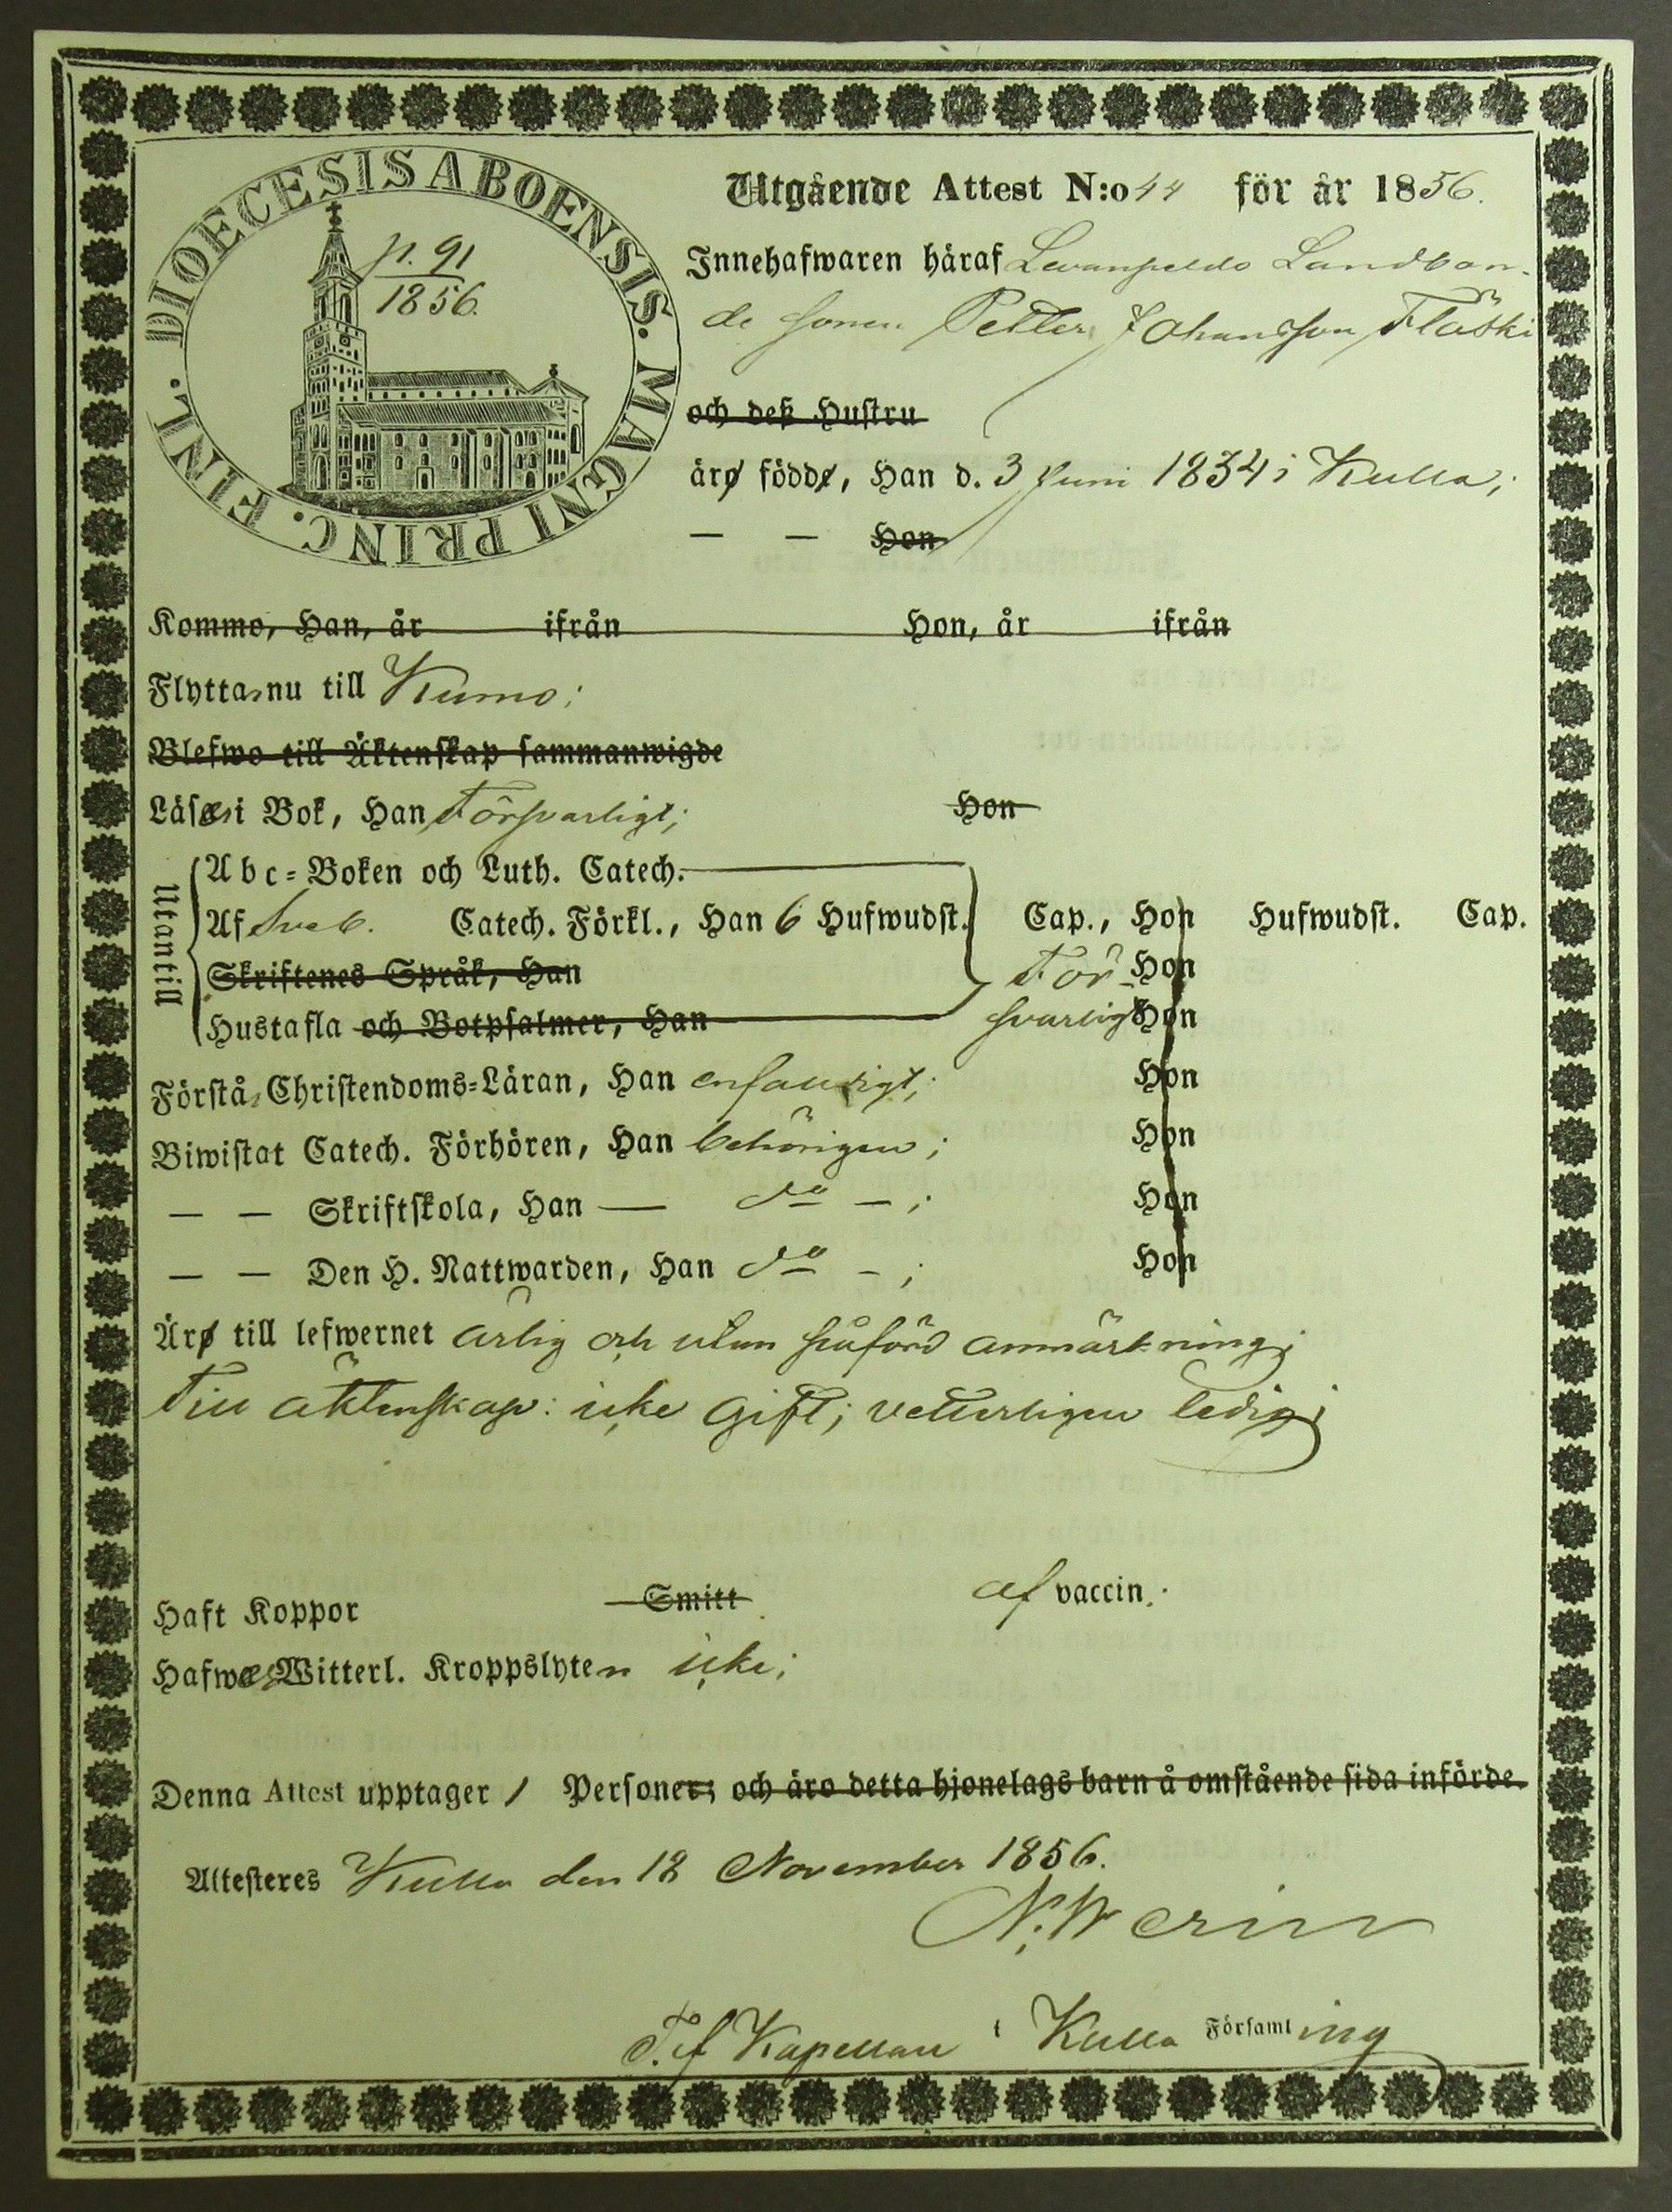 DIOECESIS ABOENSIS. MAGNI PRINC. FINL.
p. 91
1856.
Utgående Attest N:o 44 för år 1856.
Innehafwaren häraf Landbon-
de sonen Petter Johansson Fläski
och deß Hustru
äro födde, Han d. 3 Juni 1834 i Kulla;
— — Hon
Kommo, Han, år ifrån Hon, år ifrån
Flyttar nu till Kumo;
Blefwo till Äktenskap sammanwigde
Läser i Bok, Han Försvarligt; Hon
Utantill
Abc-Boken och Luth. Catech.
Af Sveb. Catech. Förkl., Han 6 Hufwudst. Cap., Hon Hufwudst. Cap.
Skriftenes Språk, Han För- Hon
Hustafla och Botpsalmer, Han svarligt Hon
Förstår Christendoms-Läran, Han enfaldigt; Hon
Biwistat Catech. Förhören, Han behörigen; Hon
— — Skriftskola, Han — do —; Hon
— — Den H. Nattwarden, Han do —; Hon
Äro till lefwernet ärlig och utan påförd anmärkning;
Till äktenskap: icke gift; vetterligen ledig;
Haft Koppor Smitt af vaccin.
Hafwer Witterl. Kroppslyten icke;
Denna Attest upptager 1 Personer; och äro detta hjonelags barn å omstående sida införde.
Attesteres Kulla den 18 November 1856.
N. Werin
T.f. Kapellan i Kulla Församling